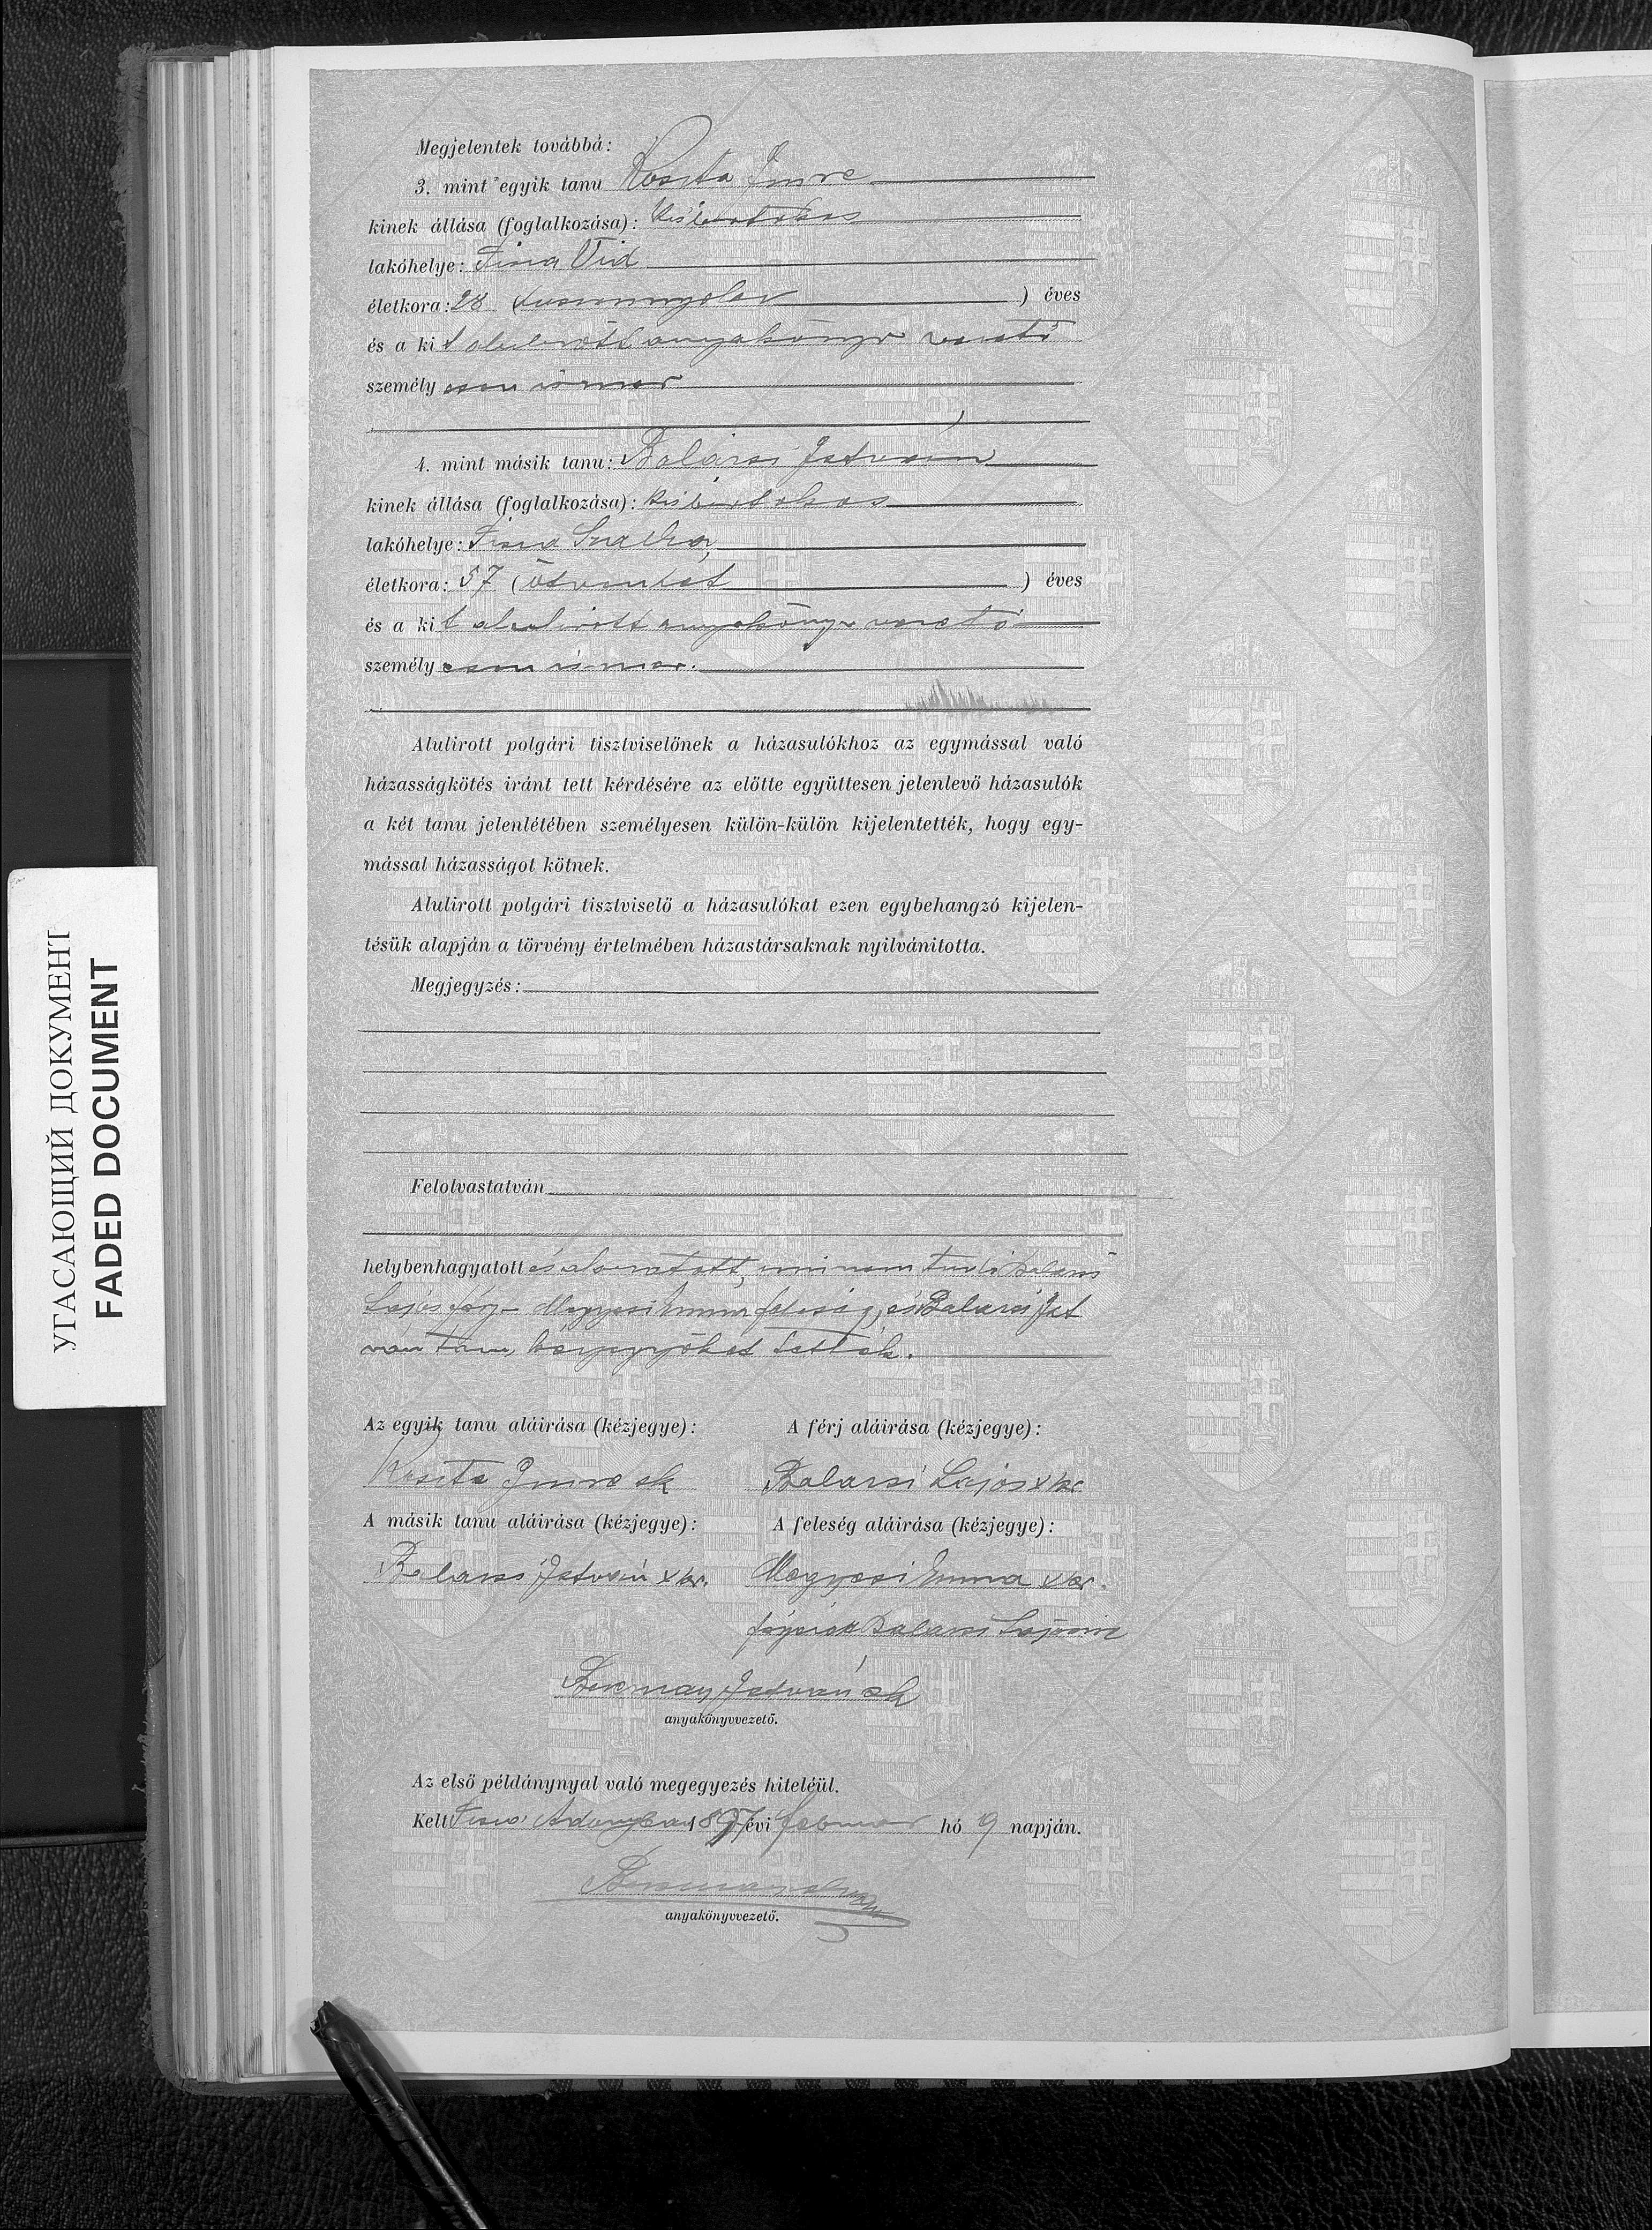 Megjelentek továbbá:
3. mint egyik tanu Koszta Imre
kinek állása (foglalkozása): kisbirtokos
lakóhelye: Tisza Vid
életkora: 28 (huszonnyolcz) éves
és a kit alulirott anyakönyv vezető
személyesen ismer
4. mint másik tanu: Balázsi István
kinek állása (foglalkozása): kisbirtokos
lakóhelye: Tisza Szalka,
életkora: 57 (ötvenhét) éves
és a kit alulirott anyakönyv vezető
személyesen ismer.
Alulirott polgári tisztviselőnek a házasulókhoz az egymással való
házasságkötés iránt tett kérdésére az előtte együttesen jelenlevő házasulók
a két tanu jelenlétében személyesen külön-külön kijelentették, hogy egy-
mással házasságot kötnek.
Alulirott polgári tisztviselő a házasulókat ezen egybehangzó kijelen-
tésük alapján a törvény értelmében házastársaknak nyilvánitotta.
Megjegyzés:
Felolvastatván
helybenhagyatott és aláiratott, mi nem tudó Balázsi
Lajos férj - Megyesi Emma feleség, és Balázsi Ist
ván tanu, kézjegyöket tették.
Az egyik tanu aláirása (kézjegye): A férj aláirása (kézjegye):
Koszta Imre sk Balázsi Lajos x kz
A másik tanu aláirása (kézjegye): A feleség aláirása (kézjegye):
Balázsi István x kz. Megyesi Emma x kz.
Balázsi Lajosné
István sk
anyakönyvvezető.
Az első példánynyal való megegyezés hiteléül.
Kelt Tisza Adonyban 1897 évi február hó 9 napján.
anyakönyvvezető.
УГАСАЮЩИЙ ДОКУМЕНТ
FADED DOCUMENT